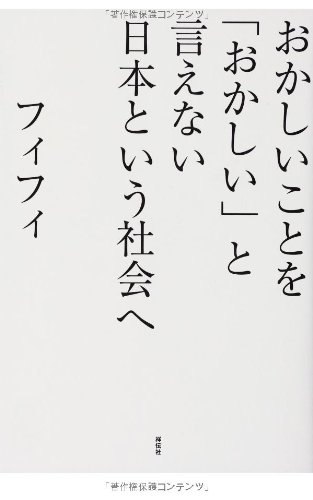 「著作権保護コンテンツ」
おかしいことを
「おかしい」と
言えない
日本という社会へ
フィフィ
祥伝社
「著作権保護コンテンツ」